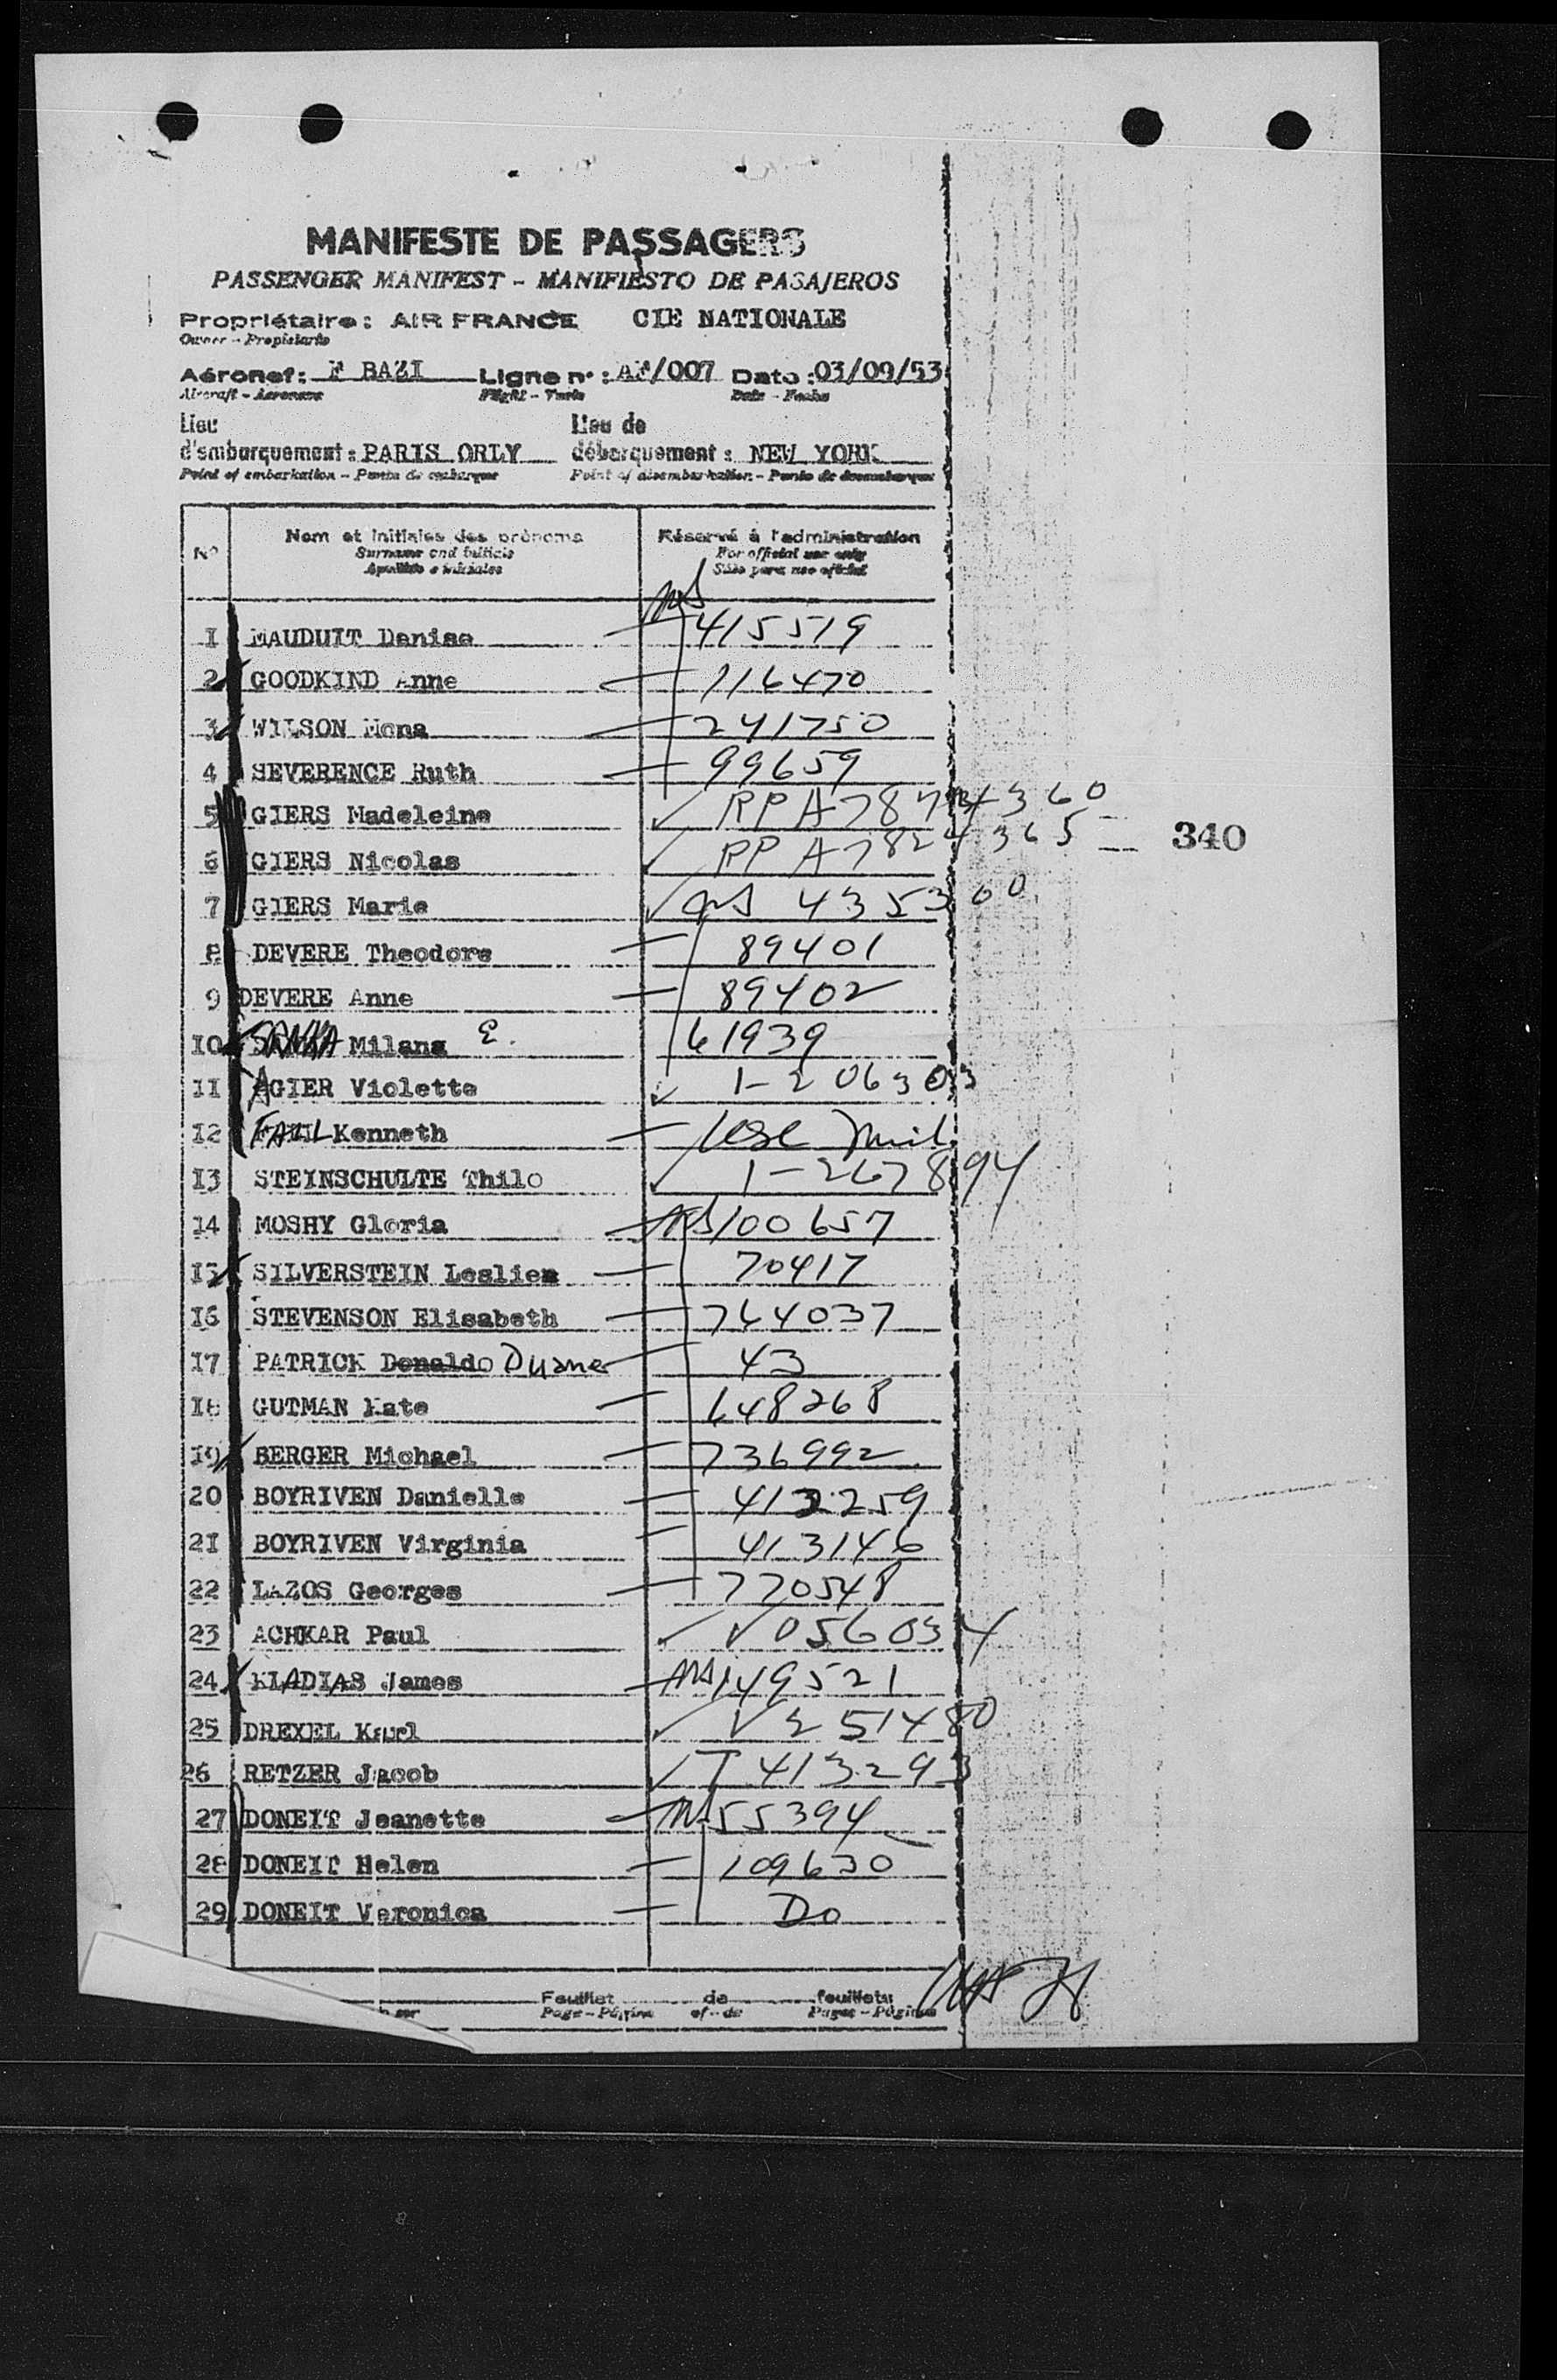 MANIFESTE DE PASSAGERS
PASSENGER MANIFEST - MANIFIESTO DE PASAJEROS
Propriétaire: AIR FRANCE CIE NATIONALE
Owner - Propietario
Aéronef: F BAZI Ligne n°: AF/007 Date: 03/09/53
Aircraft - Aeronave Flight - Vuelo Date - Fecha
Lieu Lieu de
d'embarquement: PARIS ORLY débarquement: NEW YORK
Point of embarkation - Punto de embarque Point of disembarkation - Punto de desembarque
N° Nom et initiales des prénoms Réservé à l'administration
Surname and initials For official use only
Apellido e iniciales Sólo para uso oficial
1 MAUDUIT Denise 415519
2 GOODKIND Anne 116470
3 WILSON Mona 241750
4 SEVERENCE Ruth 99659
5 GIERS Madeleine RPA 4360
6 GIERS Nicolas RPA7824365 340
7 GIERS Marie 435360
8 DEVERE Theodore 89401
9 DEVERE Anne 89402
10 Milana E. 61939
11 AGIER Violette 1-206303
12 FALL Kenneth
13 STEINSCHULTE Thilo 1-267894
14 MOSHY Gloria 100657
15 SILVERSTEIN Leslie 70417
16 STEVENSON Elisabeth 764037
17 PATRICK Donaldo Duane 43
18 GUTMAN Kate 648268
19 BERGER Michael 736992
20 BOYRIVEN Danielle 259
21 BOYRIVEN Virginia 413146
22 LAZOS Georges 770548
23 ACHKAR Paul V056034
24 KLADIAS James 149521
25 DREXEL Karl V251480
26 RETZER Jacob T413293
27 DONEIT Jeanette 55394
28 DONEIT Helen 109630
29 DONEIT Veronica Do
Feuillet de feuillets
Page - Página of - de Pages - Páginas